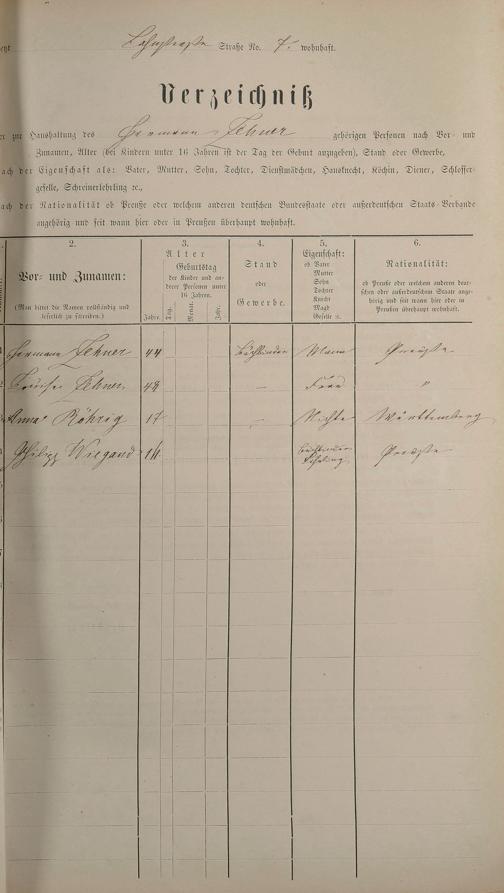 Straße No. 7. wohnhaft.
Verzeichniß
zur Haushaltung des Hermann Lehner gehörigen Personen nach Vor- und
Zunamen, Alter (bei Kindern unter 16 Jahren ist der Tag der Geburt anzugeben), Stand oder Gewerbe,
nach der Eigenschaft als: Vater, Mutter, Sohn, Tochter, Dienstmädchen, Hausknecht, Köchin, Diener, Schlosser-
geselle, Schreinerlehrling ꝛc.,
nach der Nationalität ob Preuße oder welchem anderen deutschen Bundesstaate oder außerdeutschen Staats-Verbande
angehörig und seit wann hier oder in Preußen überhaupt wohnhaft.
2.
Vor- und Zunamen:
(Man bittet die Namen vollständig und
leserlich zu schreiben.)
3.
Alter
Geburtstag
der Kinder und an-
derer Personen unter
16 Jahren.
Jahre. Tag. Monat. Jahr.
4.
Stand
oder
Gewerbe.
5.
Eigenschaft:
ob Vater
Mutter
Sohn
Tochter
Knecht
Magd
Geselle ꝛc.
6.
Nationalität:
ob Preuße oder welchem anderen deut-
schen oder außerdeutschen Staate ange-
hörig und seit wann hier oder in
Preußen überhaupt wohnhaft.
Hermann Lehner 44 Buchbinder Mann Preuße
Lehner 48 – Frau "
Anna Röhrig 17 – Nichte Württemberg
Philipp Wiegand 16 Buchbinder Lehrling Preuße